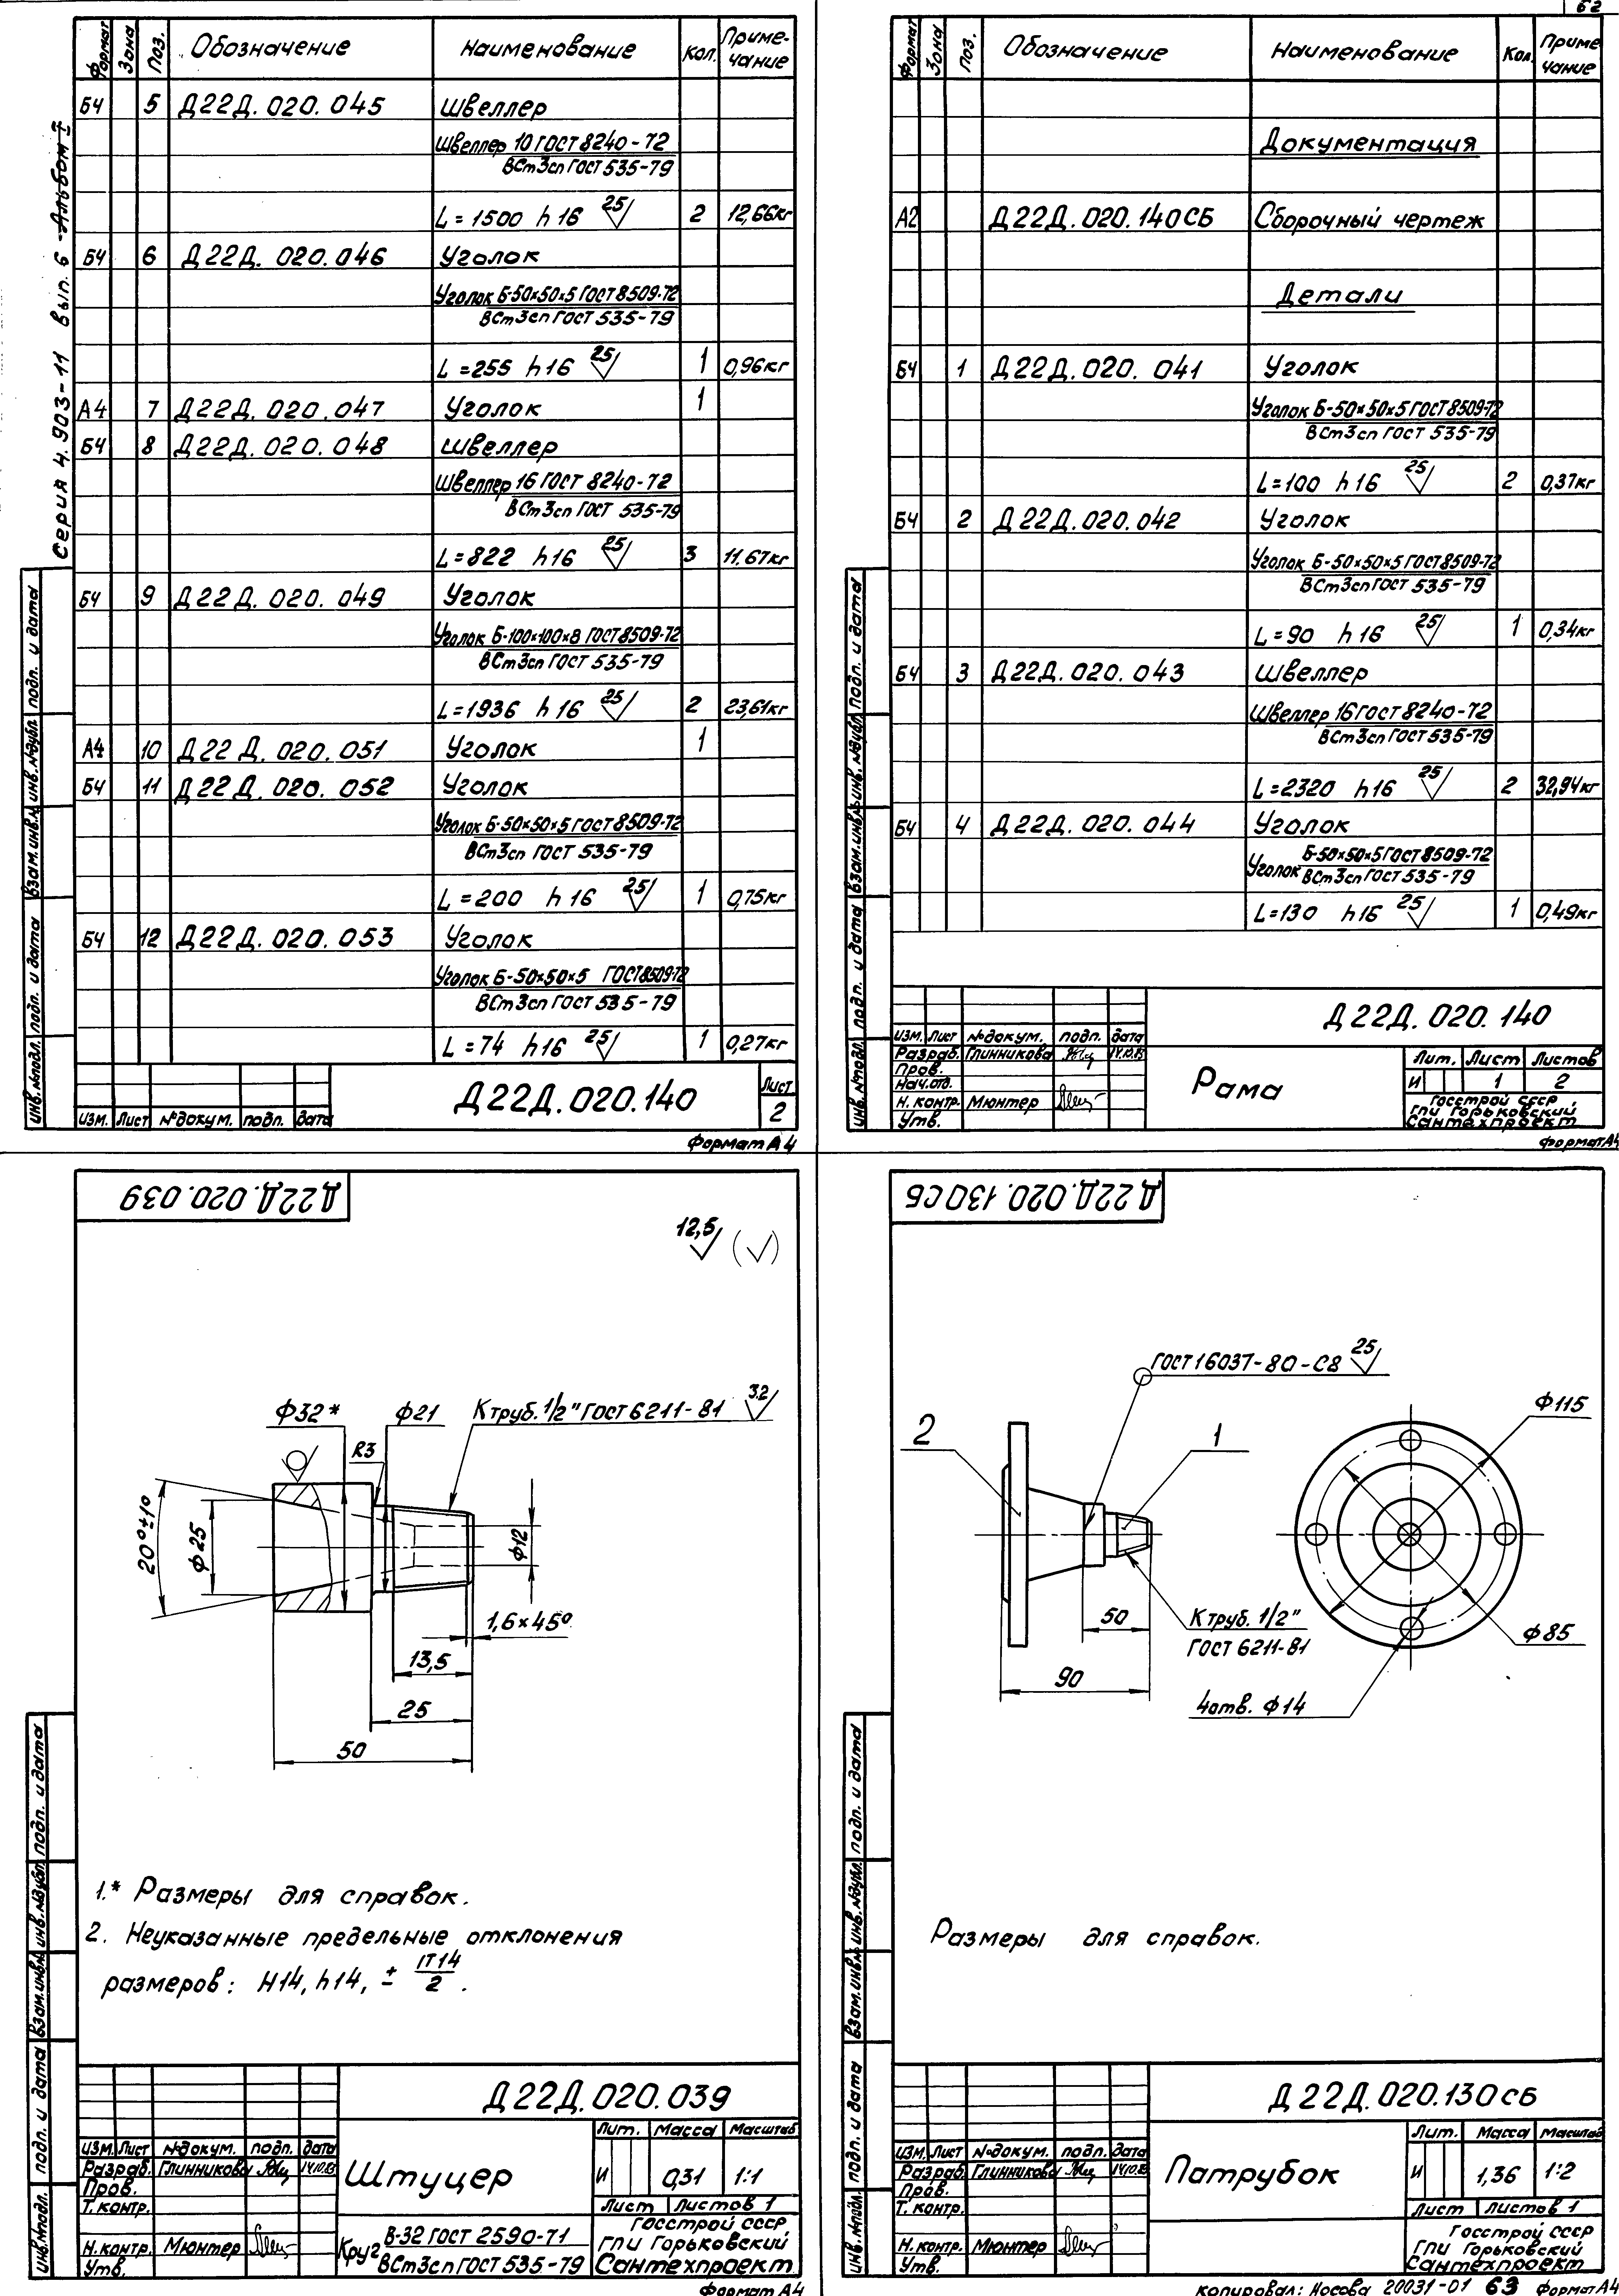 62
Серия 4.903-11 вып. 6 Альбом I
Формат Зона Поз. Обозначение Наименование Кол. Примечание
БЧ 5 Д22Д.020.045 Швеллер
Швеллер 10 ГОСТ 8240-72
ВСт3сп ГОСТ 535-79
L=1500 h16 25 2 12,66кг
БЧ 6 Д22Д.020.046 Уголок
Уголок Б-50×50×5 ГОСТ 8509-72
ВСт3сп ГОСТ 535-79
L=255 h16 25 1 0,96кг
А4 7 Д22Д.020.047 Уголок 1
БЧ 8 Д22Д.020.048 Швеллер
Швеллер 16 ГОСТ 8240-72
ВСт3сп ГОСТ 535-79
L=822 h16 25 3 11,67кг
БЧ 9 Д22Д.020.049 Уголок
Уголок Б-100×100×8 ГОСТ 8509-72
ВСт3сп ГОСТ 535-79
L=1936 h16 25 2 23,61кг
А4 10 Д22Д.020.051 Уголок 1
БЧ 11 Д22Д.020.052 Уголок
Уголок Б-50×50×5 ГОСТ 8509-72
ВСт3сп ГОСТ 535-79
L=200 h16 25 1 0,75кг
БЧ 12 Д22Д.020.053 Уголок
Уголок Б-50×50×5 ГОСТ 8509-72
ВСт3сп ГОСТ 535-79
L=74 h16 25 1 0,27кг
Изм. Лист №докум. подп. дата
Д22Д.020.140
Лист
2
Формат А4
инв.№подл. подп. и дата взам.инв.№ инв.№дубл. подп. и дата
Формат Зона Поз. Обозначение Наименование Кол. Примечание
Документация
А2 Д22Д.020.140СБ Сборочный чертеж
Детали
БЧ 1 Д22Д.020.041 Уголок
Уголок Б-50×50×5 ГОСТ 8509-72
ВСт3сп ГОСТ 535-79
L=100 h16 25 2 0,37кг
БЧ 2 Д22Д.020.042 Уголок
Уголок Б-50×50×5 ГОСТ 8509-72
ВСт3сп ГОСТ 535-79
L=90 h16 25 1 0,34кг
БЧ 3 Д22Д.020.043 Швеллер
Швеллер 16 ГОСТ 8240-72
ВСт3сп ГОСТ 535-79
L=2320 h16 25 2 32,94кг
БЧ 4 Д22Д.020.044 Уголок
Уголок Б-50×50×5 ГОСТ 8509-72
ВСт3сп ГОСТ 535-79
L=130 h16 25 1 0,49кг
Д22Д.020.140
Изм. Лист №докум. подп. дата
Разраб. Глинникова 14.10.83
Пров.
Нач.отд.
Н.контр. Мюнтер
Утв.
Рама
Лит. Лист Листов
И 1 2
Госстрой СССР
ГПИ Горьковский
Сантехпроект
Формат А4
инв.№подл. подп. и дата взам.инв.№ инв.№дубл. подп. и дата
Д22Д.020.039
12,5 (√)
Ф32*
Ф21
К труб. 1/2" ГОСТ 6211-81 3,2
R3
20°±1°
Ф25
Ф12
1,6×45°
13,5
25
50
1.* Размеры для справок.
2. Неуказанные предельные отклонения
размеров: H14, h14, ± IT14/2.
Д22Д.020.039
Изм. Лист №докум. подп. дата
Разраб. Глинникова 14.10.83
Пров.
Т.контр.
Н.контр. Мюнтер
Утв.
Штуцер
Лит. Масса Масштаб
И 0,31 1:1
Лист Листов 1
Круг В-32 ГОСТ 2590-71
ВСт3сп ГОСТ 535-79
Госстрой СССР
ГПИ Горьковский
Сантехпроект
Формат А4
инв.№подл. подп. и дата взам.инв.№ инв.№дубл. подп. и дата
Д22Д.020.130СБ
ГОСТ 16037-80-С8 25
2
1
Ф115
50
К труб. 1/2"
ГОСТ 6211-81
90
Ф85
4отв. Ф14
Размеры для справок.
Д22Д.020.130СБ
Изм. Лист №докум. подп. дата
Разраб. Глинникова 14.10.83
Пров.
Т.контр.
Н.контр. Мюнтер
Утв.
Патрубок
Лит. Масса Масштаб
И 1,36 1:2
Лист Листов 1
Госстрой СССР
ГПИ Горьковский
Сантехпроект
инв.№подл. подп. и дата взам.инв.№ инв.№дубл. подп. и дата
копировал: Носова 20031-01 63 Формат А4